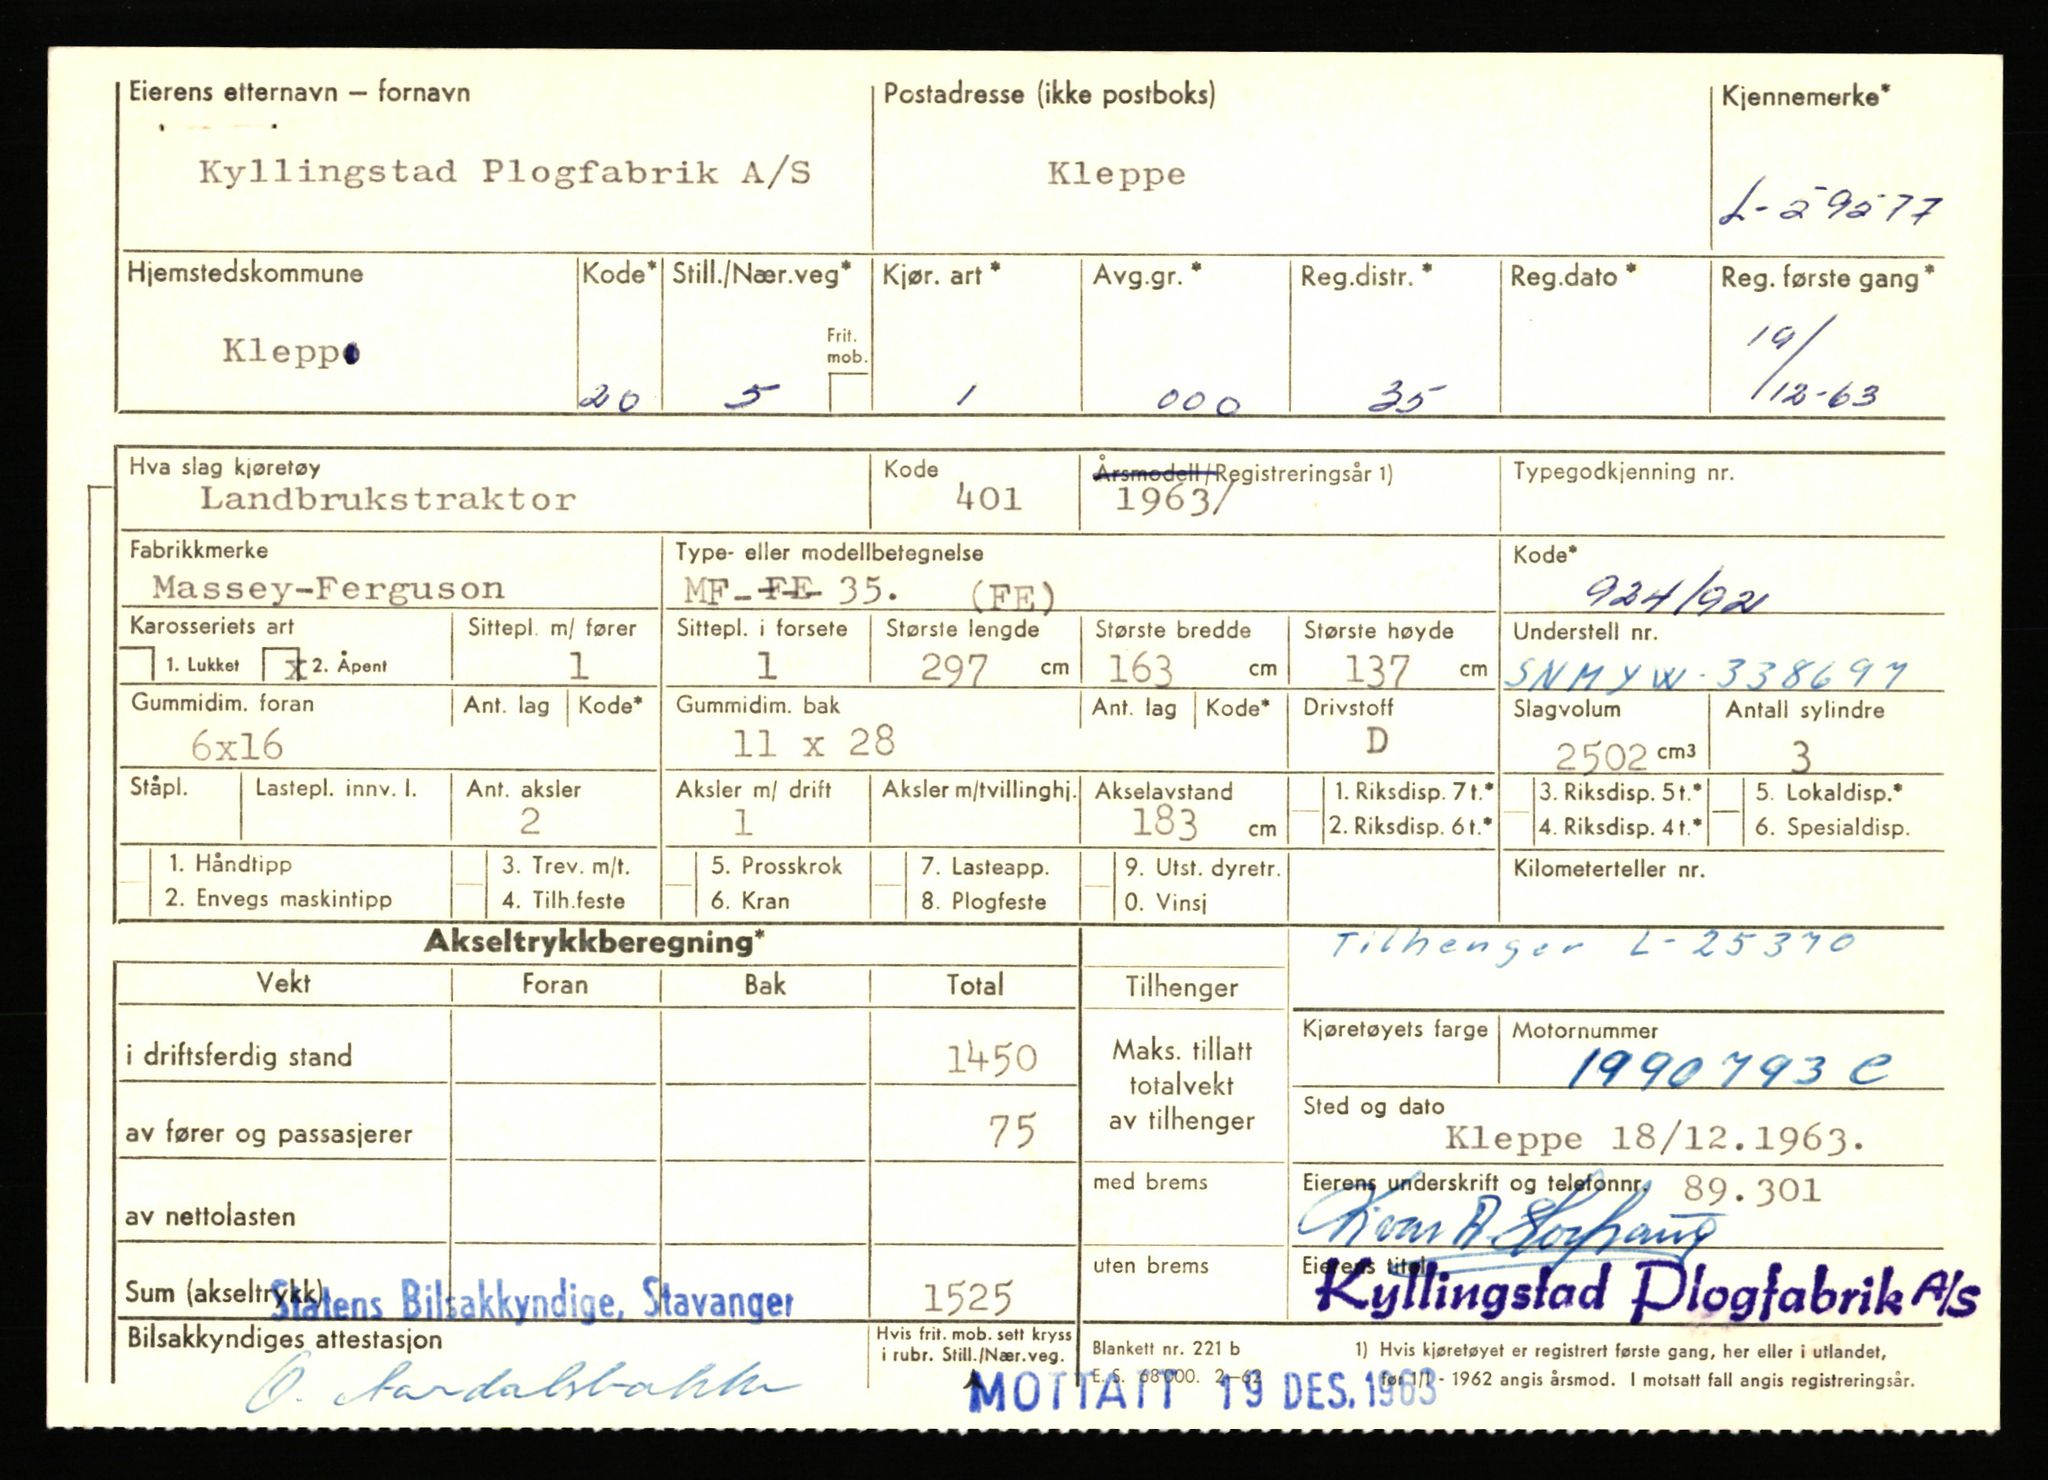 Eierens etternavn — fornavn Postadresse (ikke postboks) Kjennemerke*
Kyllingstad Plogfabrik A/S Kleppe
L-29277
Hjemstedskommune Kode* Still./Nær.veg* Kjør. art* Avg.gr.* Reg.distr.* Reg.dato* Reg. første gang*
Frit. mob.
Klepp 19/12-63
20 5 1 000 35
Hva slag kjøretøy Kode Årsmodell/Registreringsår 1) Typegodkjenning nr.
Landbrukstraktor 401 1963/
Fabrikkmerke Type- eller modellbetegnelse Kode*
Massey-Ferguson MF-FE- 35. (FE) 924/92
Karosseriets art Sittepl. m/ fører Sittepl. i forsete Største lengde Største bredde Største høyde Understell nr.
1. Lukket x 2. Åpent 1 1 297 cm 163 cm 137 cm SNMYW-338697
Gummidim. foran Ant. lag Kode* Gummidim. bak Ant. lag Kode* Drivstoff Slagvolum Antall sylindre
6x16 11 x 28 D 2502 cm3 3
Ståpl. Lastepl. innv. l. Ant. aksler Aksler m/ drift Aksler m/tvillinghj. Akselavstand 1. Riksdisp. 7 t.* 3. Riksdisp. 5 t.* 5. Lokaldisp.*
2 1 183 cm 2. Riksdisp. 6 t.* 4. Riksdisp. 4 t.* 6. Spesialdisp.
1. Håndtipp 3. Trev. m/t. 5. Prosskrok 7. Lasteapp. 9. Utst. dyretr. Kilometerteller nr.
2. Envegs maskintipp 4. Tilh.feste 6. Kran 8. Plogfeste 0. Vinsj
Akseltrykkberegning* Tilhenger L-25370
Vekt Foran Bak Total Tilhenger
Kjøretøyets farge Motornummer
i driftsferdig stand 1450 Maks. tillatt totalvekt av tilhenger 1990793 C
Sted og dato
av fører og passasjerer 75 Kleppe 18/12.1963.
med brems Eierens underskrift og telefonnr. 89.301
av nettolasten
uten brems Eierens titel
Sum (akseltrykk) 1525 Kyllingstad Plogfabrik A/S
Statens Bilsakkyndige, Stavanger
Bilsakkyndiges attestasjon Hvis frit. mob. sett kryss i rubr. Still./Nær.veg. Blankett nr. 221 b 1) Hvis kjøretøyet er registrert første gang, her eller i utlandet,
E. S. 68 000. 2—62 før 1/1 - 1962 angis årsmod. I motsatt fall angis registreringsår.
O. Aardalsbakke MOTTATT 19 DES. 1963